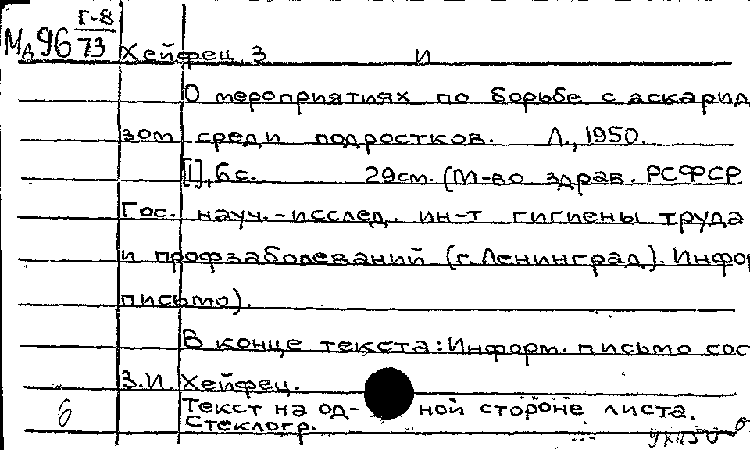 Мд 96 Г-8/73
Хейфец, З И
О мероприятиях по борьбе с аскарид
зом среди подростков. Л., 1950.
[1], 6 с. 29 см. (М-во здрав. РСФСР
Гос. науч.-исслед. ин-т гигиены труда
и профзаболеваний (г. Ленинград). Инфор
письмо).
В конце текста: Информ. письмо сос
З.И. Хейфец.
Текст на од- ной стороне листа.
Стеклогр.
6